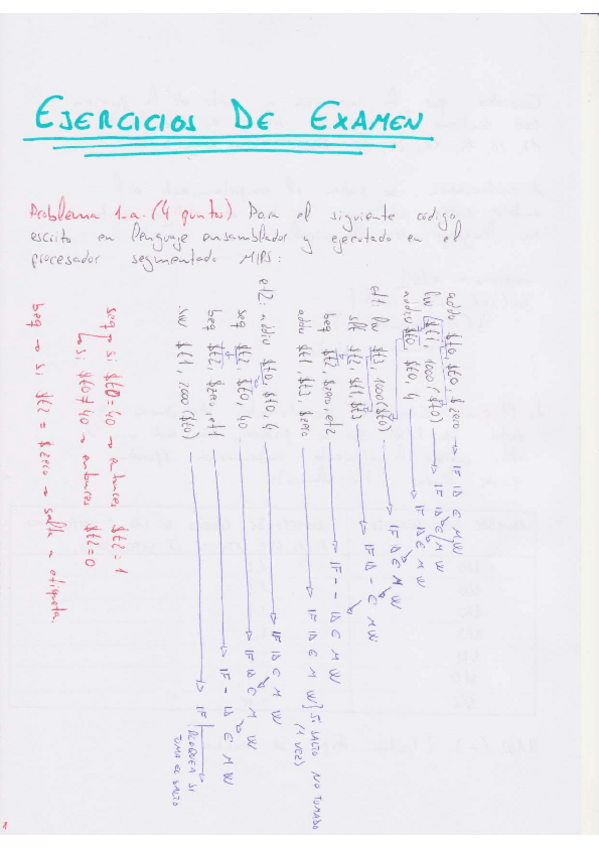 EJERCICIOS DE EXAMEN
Problema 1-a. (4 puntos) Para el siguiente código,
escrito en lenguaje ensamblador y ejecutado en el
procesador segmentado MIPS:
addu $t0, $t0, $zero → IF ID E M W
lw $t1, 1000($t0) → IF ID E M W
addiu $t0, $t0, 4 → IF ID E M W
et1: lw $t3, 1000($t0) → IF ID E M W
slt $t2, $t1, $t3 → IF ID - E M W
beq $t2, $zero, et2 → IF - - ID E M W
addu $t1, $t3, $zero → IF ID E M W } SI SALTO NO TOMADO
(1 VEZ)
et2: addiu $t0, $t0, 4 → IF ID E M W
seq $t2, $t0, 40 → IF ID E M W
beq $t2, $zero, et1 → IF - ID E M W
sw $t1, 2000($t0) → IF
BLOQUEA SI
TOMA EL SALTO
seq → si $t0 = 40 → entonces $t2 = 1
si $t0 ≠ 40 → entonces $t2 = 0
beq → si $t2 = $zero → salta → etiqueta.
1